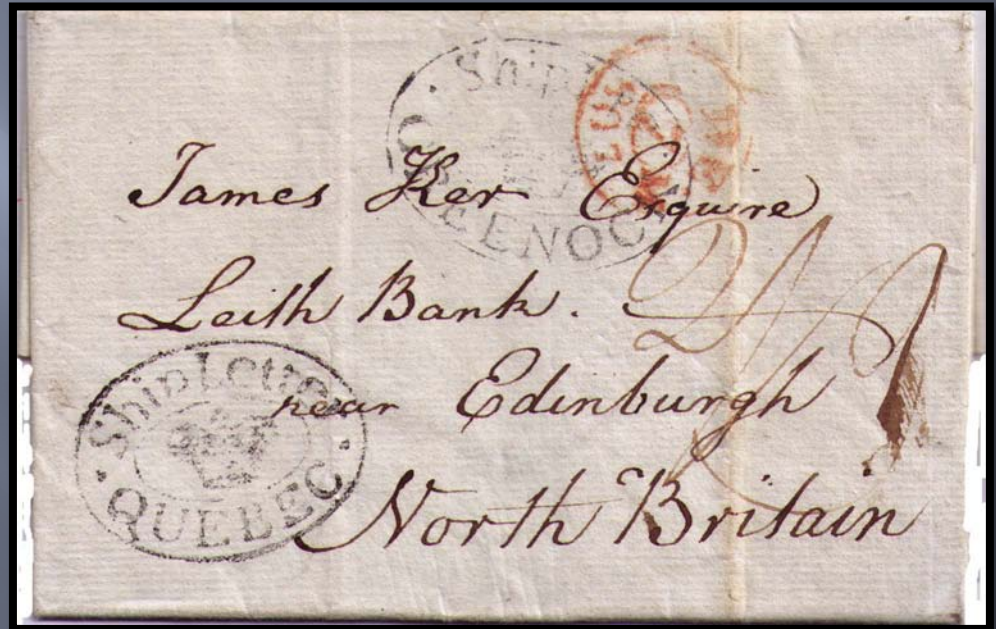 Ship
James Ker Esquire
Leith Bank.
near Edinburgh
North Britain
Ship Letter
QUEBEC